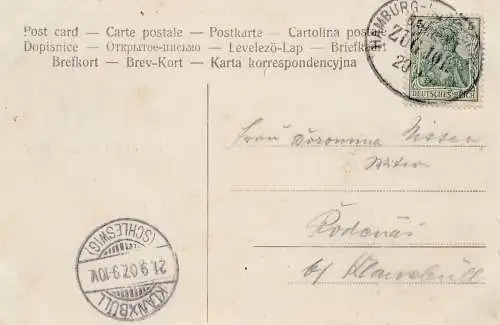 Post card — Carte postale — Postkarte — Cartolina postale —
Dopisnice — Открытое-письмо — Levelező-Lap — Briefkaart
Brefkort — Brev-Kort — Karta korrespondencyjna
HAMBURG-
ZUG 107
DEUTSCHES REICH
Frau
Rodenäs
b/ Klanxbüll
KLANXBÜLL
21.9.07.9-10V.
(SCHLESWIG)